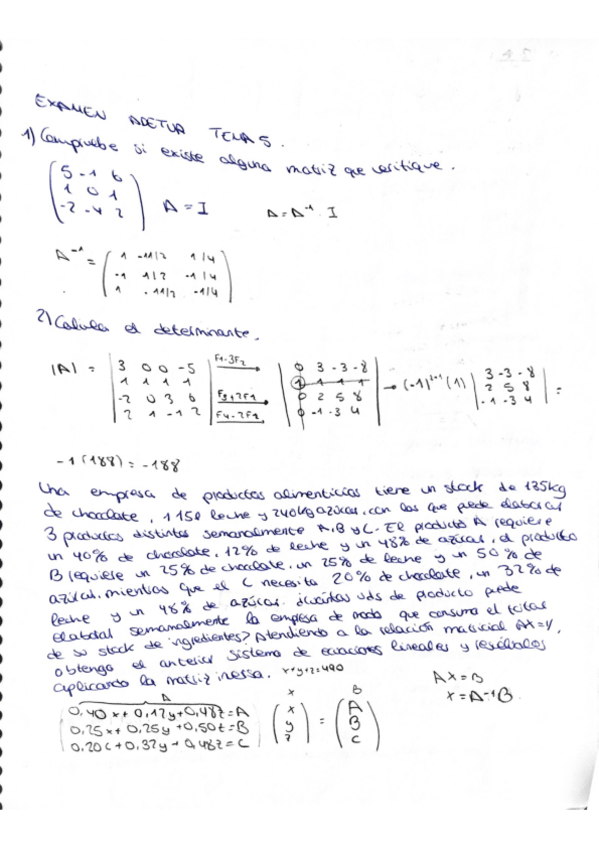 EXAMEN ADETUA TEMA 5.
1) Compruebe si existe alguna matriz que verifique.
( 5 -1 6
1 0 1
-2 -4 2 ) A = I A = A⁻¹ · I
A⁻¹ = ( 1 -11/2 1/4
-1 1/2 -1/4
1 . 11/2 -1/4 )
2) Calcula el determinante.
|A| = | 3 0 0 -5
1 1 1 1
-2 0 3 6
2 1 -1 2 | F1-3F2 F3+2F2 F4-2F2 | 0 3 -3 -8
1 1 1 1
0 2 5 8
0 -1 -3 4 | → (-1)²⁺¹ (1) | 3 -3 -8
2 5 8
-1 -3 4 | =
-1 (188) = -188
Una empresa de productos alimenticios tiene un stock de 135kg
de chocolate, 115l leche y 240kg azúcar, con los que puede elaborar
3 productos distintos semanalmente A, B y C. El producto A requiere
un 40% de chocolate, 12% de leche y un 48% de azúcar, el producto
B requiere un 25% de chocolate, un 25% de leche y un 50% de
azúcar, mientras que el C necesita 20% de chocolate, un 32% de
leche y un 48% de azúcar. ¿cuántas uds de producto puede
elaborar semanalmente la empresa de modo que consuma el total
de su stock de ingredientes? Atendiendo a la relación matricial AX=Y,
obtenga el anterior sistema de ecuaciones lineales y resuélvalos
aplicando la matriz inversa. x+y+z=490
AX=B
X=A⁻¹B
A x B
0,40x + 0,12y + 0,48z = A
0,25x + 0,25y + 0,50z = B
0,20c + 0,32y + 0,48z = C ( x
y
z ) = ( A
B
C )